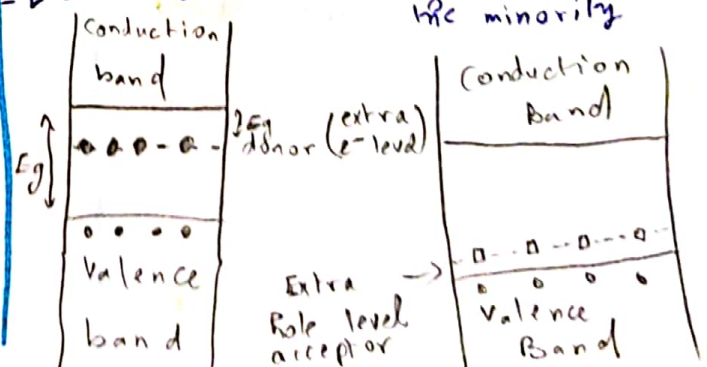 the minority
Conduction
band
Eg
Eg
donor (extra
e- level)
Valence
band
Conduction
Band
Extra
Hole level
acceptor
Valence
Band